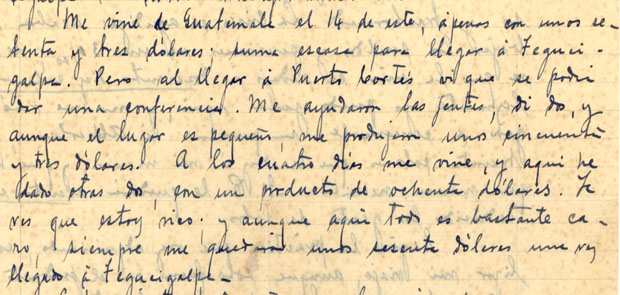 Me vine de Guatemala el 14 de este, ápenas con unos se-
tenta y tres dólares, suma escasa para llegar á Teguci-
galpa. Pero al llegar á Puerto Cortés vi que se podía
dar una conferencia. Me ayudaron las gentes, di dos, y
aunque el lugar es pequeño, me produjeron unos cincuenta
y tres dólares. A los cuatro días me vine, y aquí he
dado otras dos, con un producto de ochenta dólares. Ya
ves que estoy rico; y aunque aquí todo es bastante ca-
ro, siempre me quedarán unos sesenta dólares una vez
llegado á Tegucigalpa.